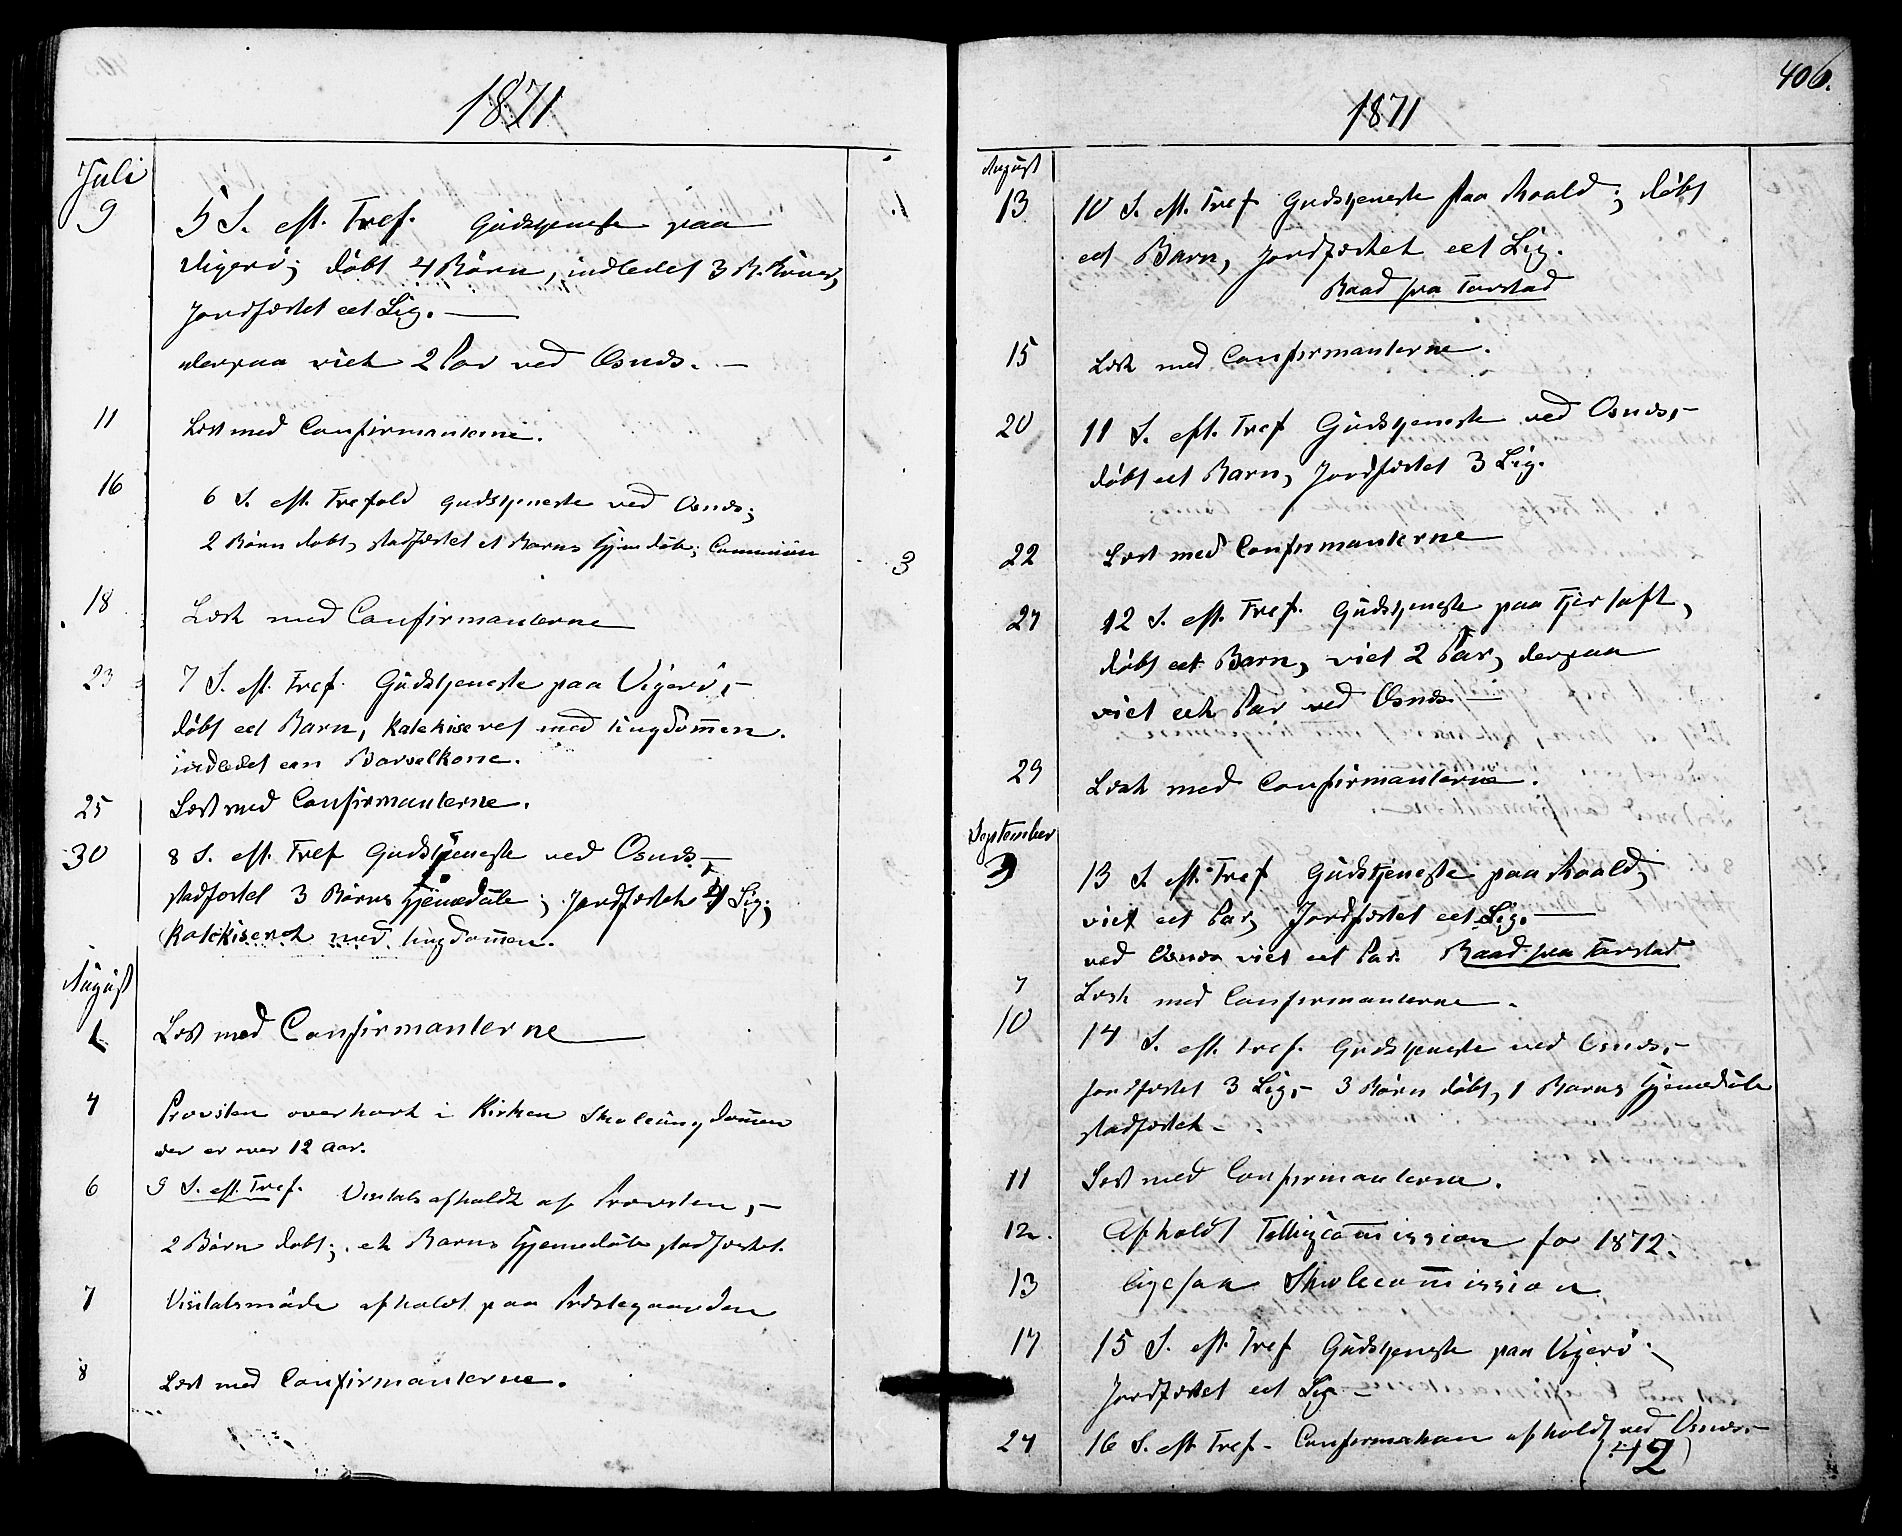 1871
Juli
9 5 S. eft. Tref. Gudstjeneste paa
Vigerö; döbt 4 Börn, indledet 3 B. Koner,
Jordfæstet eet Lig. —
derpaa viet 2 Par ved Osnæs. —
11 Læst med Confirmanterne.
16 6 S. eft. Trefold Gudstjeneste ved Osnæs;
2 Börn döbt, stadfæstet et Barns Hjemdåb; Communion 3
18 Læst med Confirmanterne
23 7 S. eft. Tref. Gudstjeneste paa Vigerö, —
döbt eet Barn, Katekiseret med Ungdommen.
indledet een Barselkone.
25 Læst med Confirmanterne.
30 8 S. eft. Tref Gudstjeneste ved Osnæs. —
stadfæstet 3 Börns Hjemedåb; Jordfæstet 4 Lig;
Katekiseret med Ungdommen.
August
1 Læst med Confirmanterne
4 Provsten overhört i Kirken Skoleungdommen
der er over 12 Aar.
6 9 S. eft. Tref. Visitats afholdt af Provsten, —
2 Börn döbt; et Barns Hjemmedåb stadfæstet.
7 Visitatsmöde afholdt paa Præstegaarden
8 Læst med Confirmanterne.
406.
1871
August
13 10 S. eft. Tref Gudstjeneste paa Roald; döbt
eet Barn, Jordfæstet eet Lig.
Baad fra Tarstad
15 Læst med Confirmanterne.
20 11 S. eft. Tref Gudstjeneste ved Osnæs, —
döbt eet Barn, Jordfæstet 3 Lig.
22 Læst med Confirmanterne
27 12 S. eft. Tref. Gudstjeneste paa Fjørtoft,
döbt eet Barn, viet 2 Par, derpaa
viet eet Par ved Osnæs. —
29 Læst med Confirmanterne.
September
3 13 S. eft. Tref Gudstjeneste paa Roald,
viet eet Par, Jordfæstet eet Lig. —
ved Osnæs viet eet Par. Baad fra Tarstad
7 Læst med Confirmanterne.
10 14 S. eft. Tref. Gudstjeneste ved Osnæs, —
Jordfæstet 3 Lig, — 3 Börn döbt, 1 Barns Hjemedåb
stadfæstet —
11 Læst med Confirmanterne.
12. Afholdt Fattigcommission for 1872.
13 ligesaa Skolecommission
17 15 S. eft. Tref Gudstjeneste paa Vigerö.
Jordfæstet eet Lig —
24 16 S. eft. Tref — Confirmation afholdt ved Osnæs. —
(42)